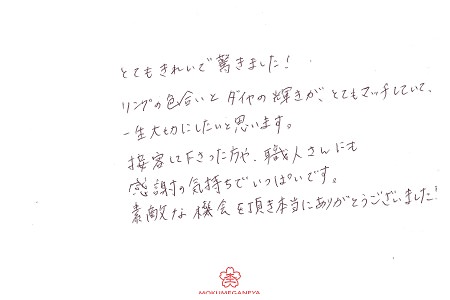 とてもきれいで驚きました!
リングの色合いとダイヤの輝きが、とてもマッチしていて、
一生大切にしたいと思います。
接客して下さった方や、職人さんにも
感謝の気持ちでいっぱいです。
素敵な機会を頂き本当にありがとうございました!
MOKUMEGANEYA